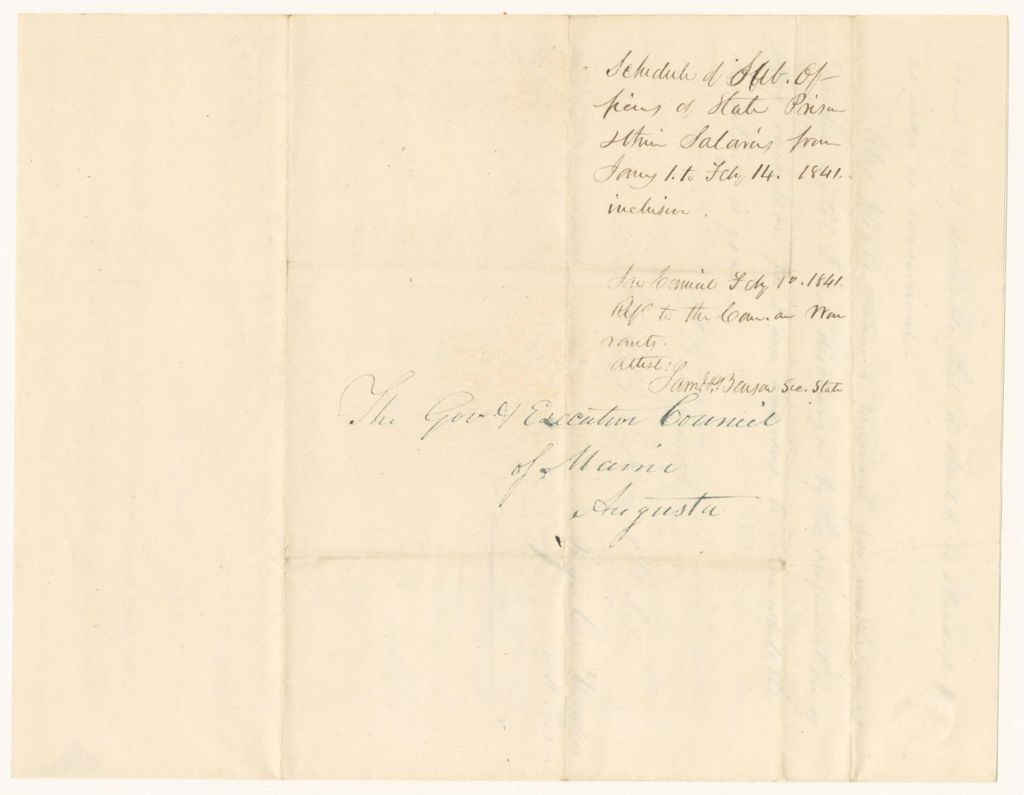 Schedule of Sub. Of-
ficers of State Prison
& their Salaries from
Jany 1. to Feby 14. 1841.
inclusive.
In Council Feby 10. 1841.
Refd to the Com. on War
rants.
Attest:
Saml P. Benson Sec. State
The Gov & Executive Council
of Maine
Augusta